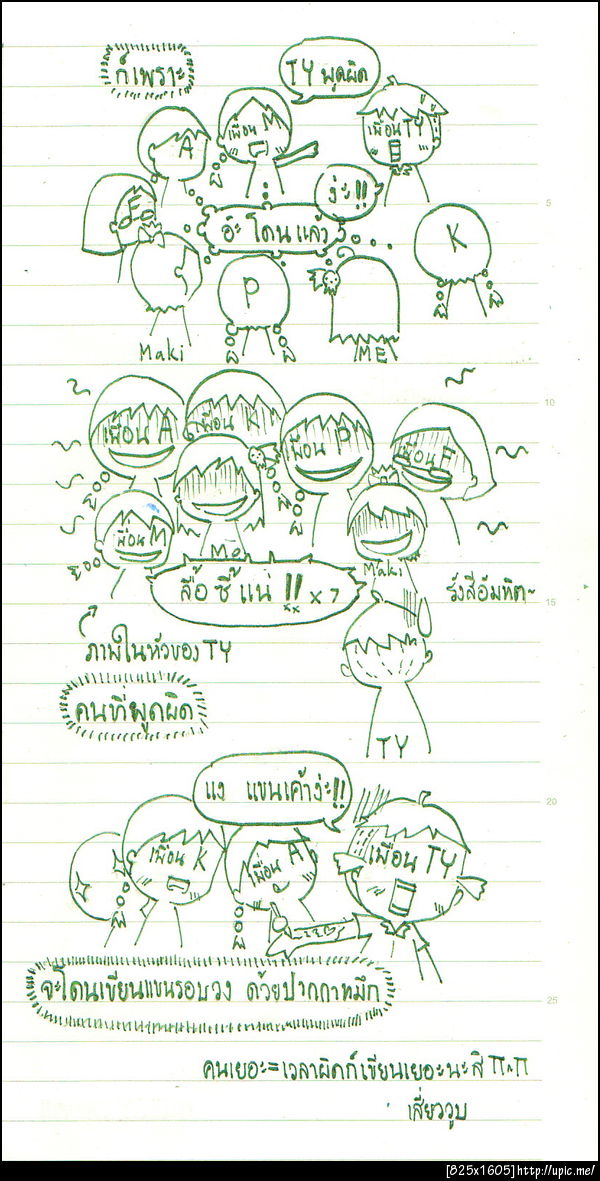 ก็เพราะ
TY พูดผิด
A
เพื่อน M
เพื่อน TY
ง่ะ!!
E
อ๊ะ โดนแล้ว
K
P
Maki
ME
เพื่อน A
เพื่อน K
เพื่อน P
เพื่อน E
เพื่อน M
Me
Maki
ลื้อ ซี้ แน่ !! x 7
รังสีอัมหิต~
ภาพในหัวของ TY
คนที่พูดผิด
TY
แง แขนเค้าง่ะ!!
เพื่อน K
เพื่อน A
เพื่อน TY
จะโดนเขียนแขนรอบวง ด้วยปากกาหมึก
คนเยอะ=เวลาผิดก็เขียนเยอะนะสิ
เสี่ยววูบ
5
10
15
20
25
[825x1605]http://upic.me/